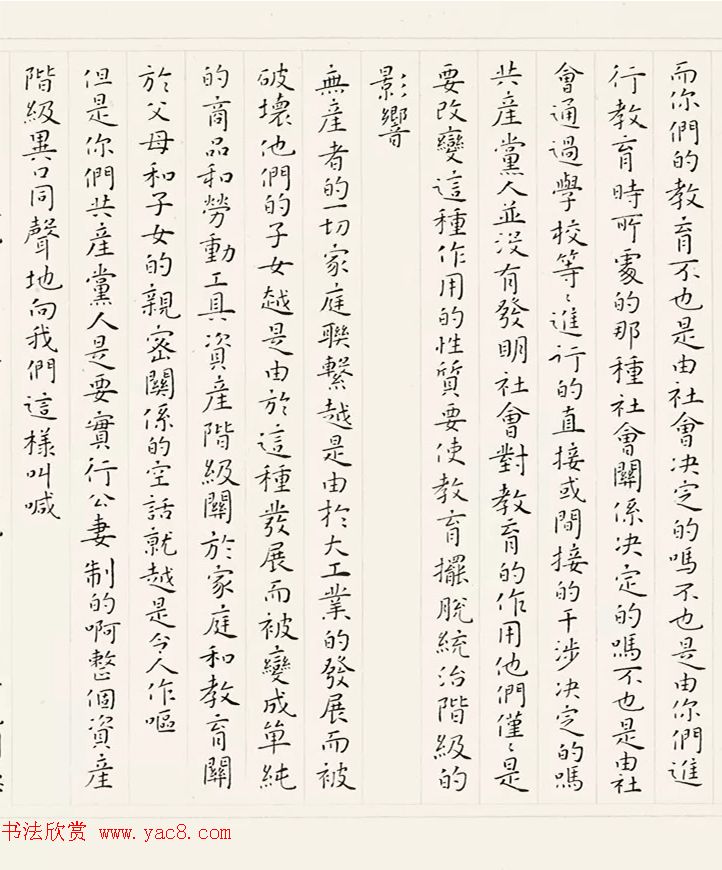 而你們的教育不也是由社會决定的嗎不也是由你們進
行教育時所處的那種社會關係决定的嗎不也是由社
會通過學校等〻進行的直接或間接的干涉决定的嗎
共産黨人並没有發明社會對教育的作用他們僅〻是
要改變這種作用的性質要使教育擺脱統治階級的
影響
無産者的一切家庭聯繫越是由於大工業的發展而被
破壞他們的子女越是由於這種發展而被變成單純
的商品和勞動工具資産階級關於家庭和教育關
於父母和子女的親密關係的空話就越是令人作嘔
但是你們共産黨人是要實行公妻制的啊整個資産
階級異口同聲地向我們這樣叫喊
书法欣赏 www.yac8.com